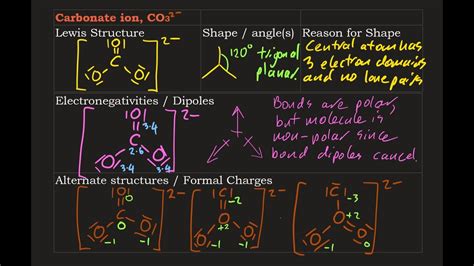 Carbonate ion, CO₃²⁻
Lewis Structure
Shape / angle(s)
Reason for Shape
|O|
C
O O
2-
120° trigonal
planar
Central atom has
3 electron domains
and no lone pairs
Electronegativities / Dipoles
|O| 3.4
C 2.6
O 3.4 O 3.4
2-
Bonds are polar,
but molecule is
non-polar since
bond dipoles cancel.
Alternate structures / Formal Charges
|O| 0
C 0
O -1 O -1
2-
|C| -2
O +2
O -1 O 0
2-
|C| -3
O +2
O -1 O
2-